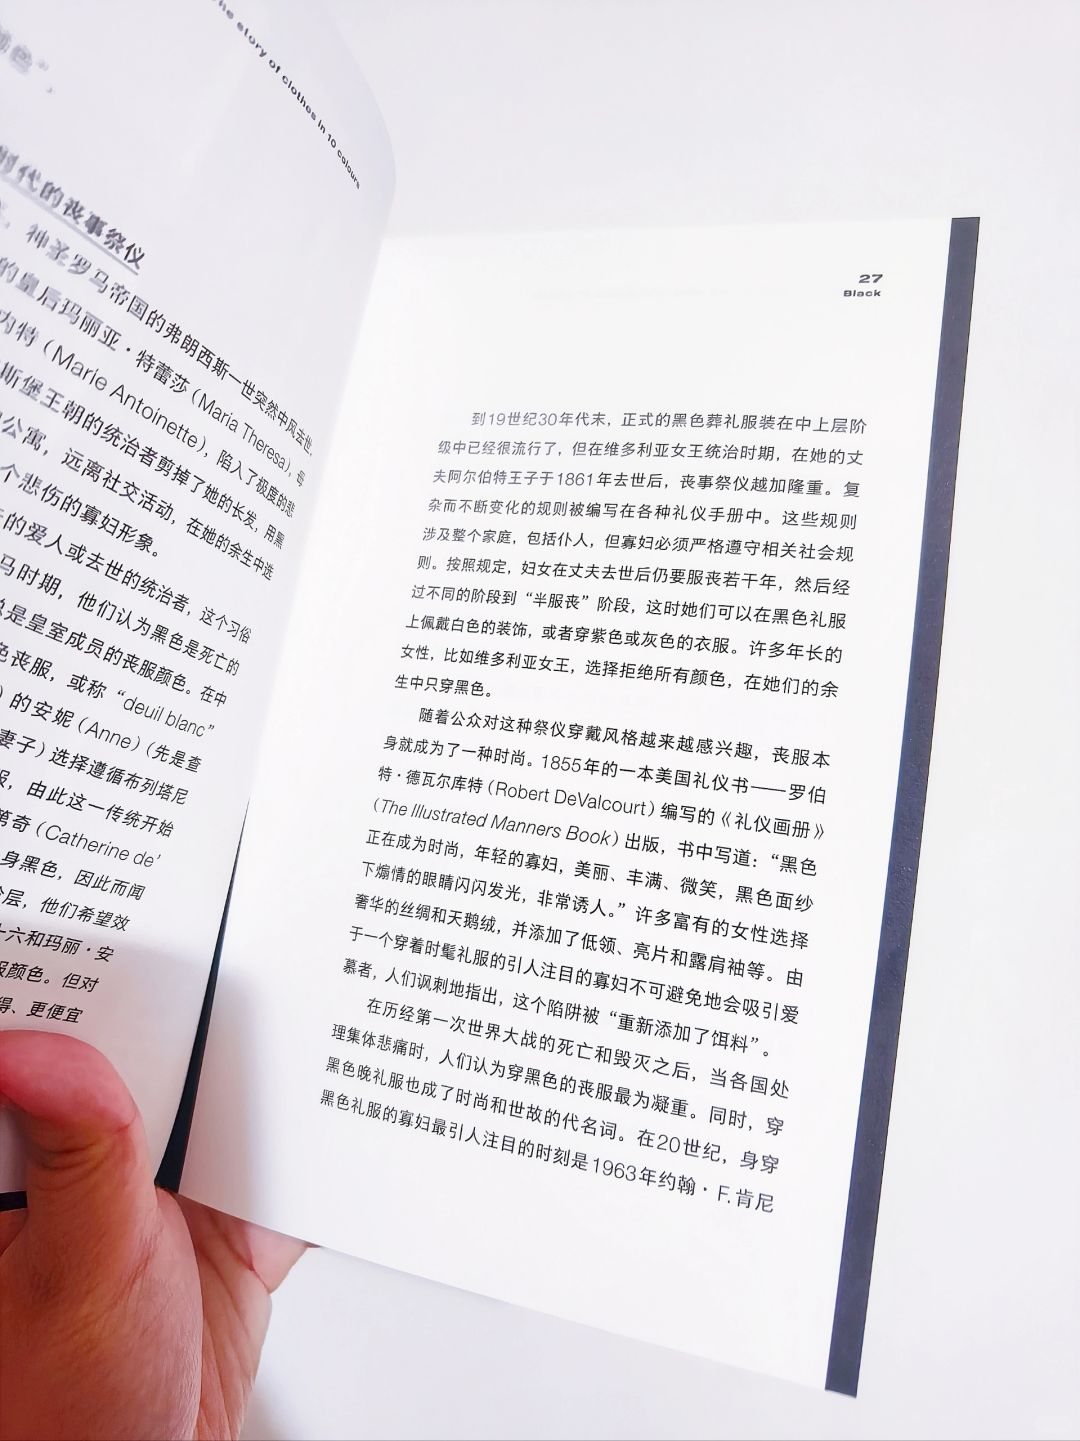 he story of clothes in 10 colours
色”，
时代的丧事祭仪
神圣罗马帝国的弗朗西斯一世突然中风去世，
的皇后玛丽亚·特蕾莎（Maria Theresa），母
内特（Marie Antoinette），陷入了极度的悲
斯堡王朝的统治者剪掉了她的长发，用黑
公寓，远离社交活动，在她的余生中选
个悲伤的寡妇形象。
的爱人或去世的统治者，这个习俗
马时期，他们认为黑色是死亡的
总是皇室成员的丧服颜色。在中
色丧服，或称“deuil blanc”
）的安妮（Anne）（先是查
妻子）选择遵循布列塔尼
服，由此这一传统开始
第奇（Catherine de'
身黑色，因此而闻
层，他们希望效
十六和玛丽·安
服颜色。但对
得、更便宜
27
Black
到19世纪30年代末，正式的黑色葬礼服装在中上层阶
级中已经很流行了，但在维多利亚女王统治时期，在她的丈
夫阿尔伯特王子于1861年去世后，丧事祭仪越加隆重。复
杂而不断变化的规则被编写在各种礼仪手册中。这些规则
涉及整个家庭，包括仆人，但寡妇必须严格遵守相关社会规
则。按照规定，妇女在丈夫去世后仍要服丧若干年，然后经
过不同的阶段到“半服丧”阶段，这时她们可以在黑色礼服
上佩戴白色的装饰，或者穿紫色或灰色的衣服。许多年长的
女性，比如维多利亚女王，选择拒绝所有颜色，在她们的余
生中只穿黑色。
随着公众对这种祭仪穿戴风格越来越感兴趣，丧服本
身就成为了一种时尚。1855年的一本美国礼仪书——罗伯
特·德瓦尔库特（Robert DeValcourt）编写的《礼仪画册》
（The Illustrated Manners Book）出版，书中写道：“黑色
正在成为时尚，年轻的寡妇，美丽、丰满、微笑，黑色面纱
下煽情的眼睛闪闪发光，非常诱人。”许多富有的女性选择
奢华的丝绸和天鹅绒，并添加了低领、亮片和露肩袖等。由
于一个穿着时髦礼服的引人注目的寡妇不可避免地会吸引爱
慕者，人们讽刺地指出，这个陷阱被“重新添加了饵料”。
在历经第一次世界大战的死亡和毁灭之后，当各国处
理集体悲痛时，人们认为穿黑色的丧服最为凝重。同时，穿
黑色晚礼服也成了时尚和世故的代名词。在20世纪，身穿
黑色礼服的寡妇最引人注目的时刻是1963年约翰·F.肯尼